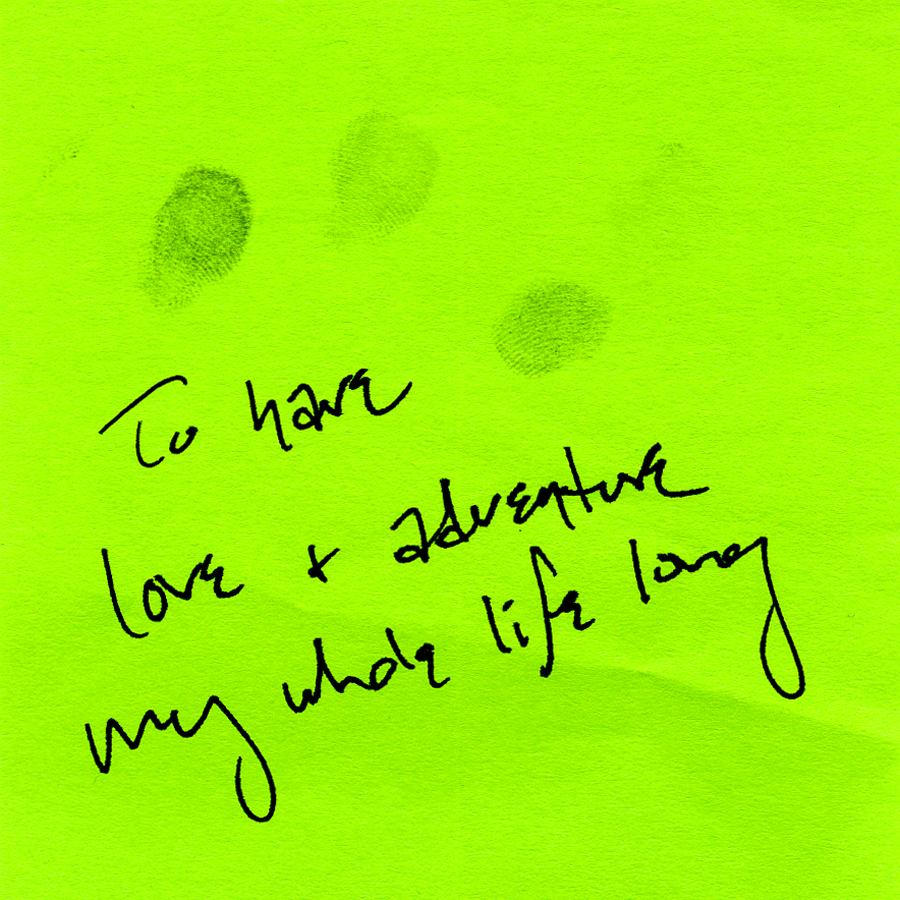 To have
love + adventure
my whole life long